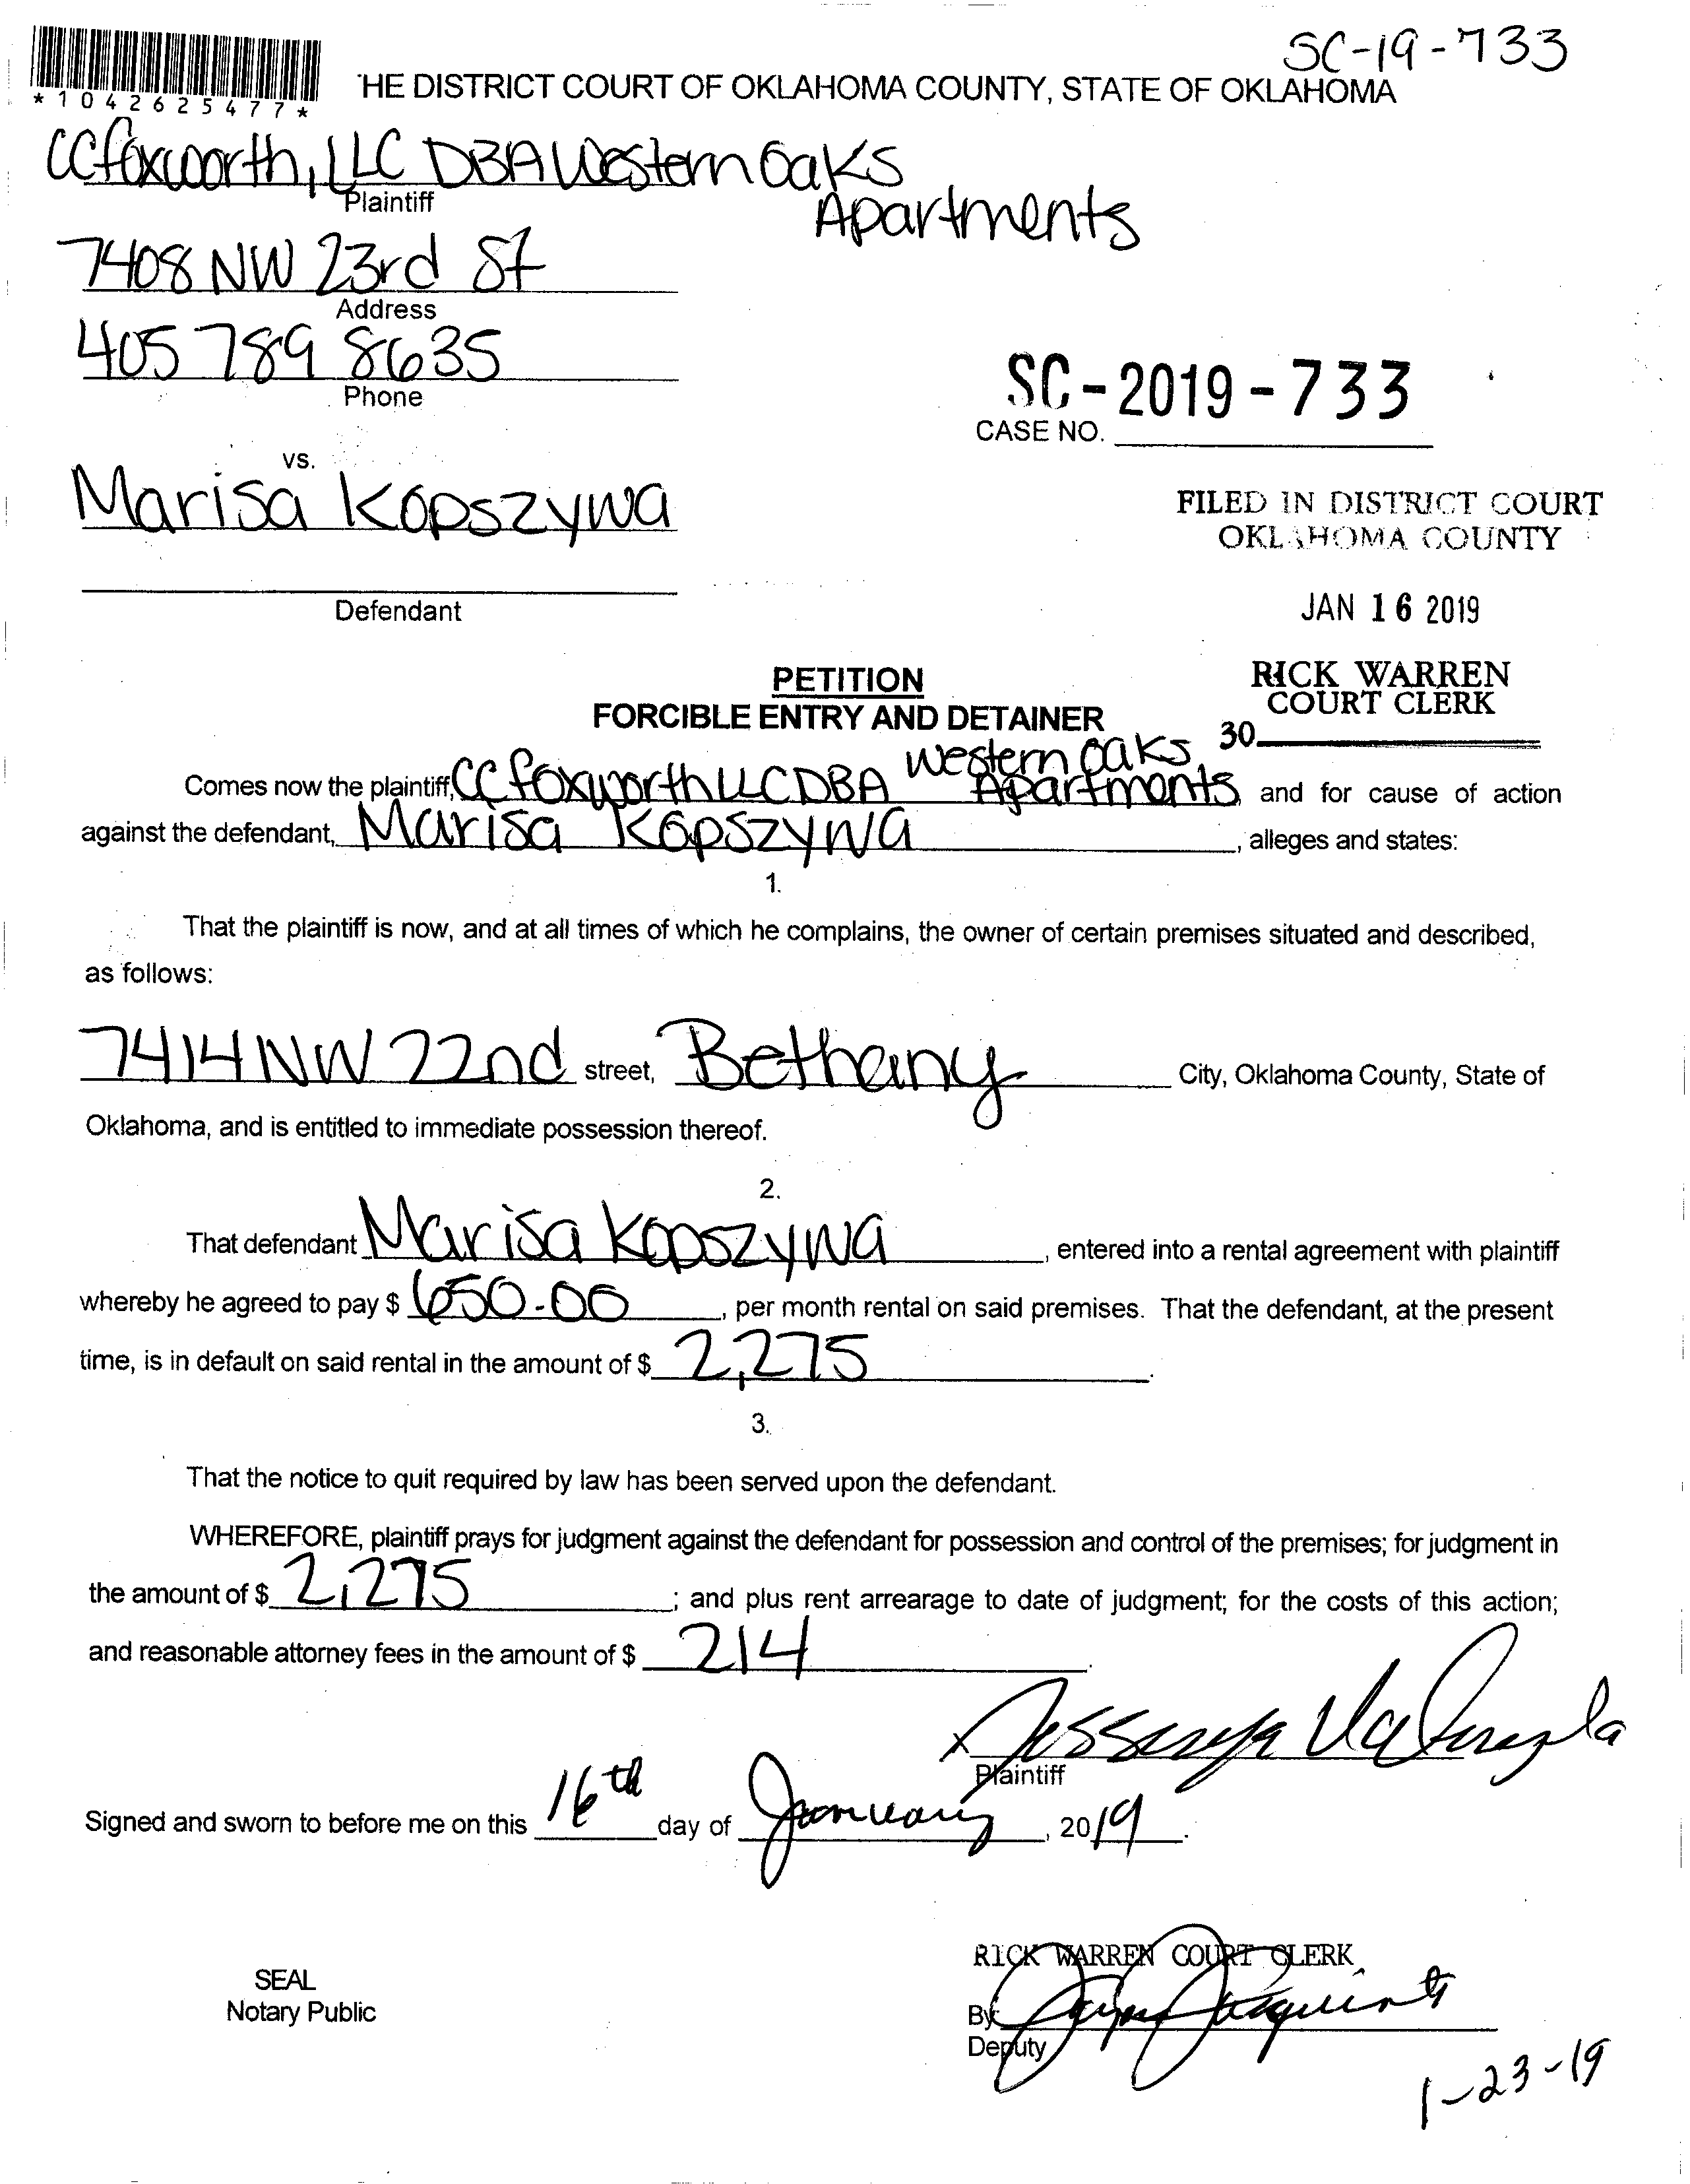 SC-19-733
*1042625477*
HE DISTRICT COURT OF OKLAHOMA COUNTY, STATE OF OKLAHOMA
CCfoxworth, LLC DBA Western Oaks
Apartments
Plaintiff
7408 NW 23rd St
Address
405 789 8635
Phone
SC-2019-733
CASE NO.
vs.
Marisa Kopszywa
FILED IN DISTRICT COURT
OKLAHOMA COUNTY
Defendant
JAN 16 2019
PETITION
RICK WARREN
COURT CLERK
FORCIBLE ENTRY AND DETAINER
30
Comes now the plaintiff, CC foxworth LLC DBA Western Oaks Apartments, and for cause of action
against the defendant, Marisa Kopszywa, alleges and states:
1.
That the plaintiff is now, and at all times of which he complains, the owner of certain premises situated and described,
as follows:
7414 NW 22nd street, Bethany City, Oklahoma County, State of
Oklahoma, and is entitled to immediate possession thereof.
2.
That defendant Marisa Kopszywa, entered into a rental agreement with plaintiff
whereby he agreed to pay $ 650.00, per month rental on said premises. That the defendant, at the present
time, is in default on said rental in the amount of $ 2,275.
3.
That the notice to quit required by law has been served upon the defendant.
WHEREFORE, plaintiff prays for judgment against the defendant for possession and control of the premises; for judgment in
the amount of $ 2,275; and plus rent arrearage to date of judgment; for the costs of this action;
and reasonable attorney fees in the amount of $ 214.
x
Plaintiff
Signed and sworn to before me on this 16th day of January, 2019.
RICK WARREN COURT CLERK
SEAL
Notary Public
By
Deputy
1-23-19